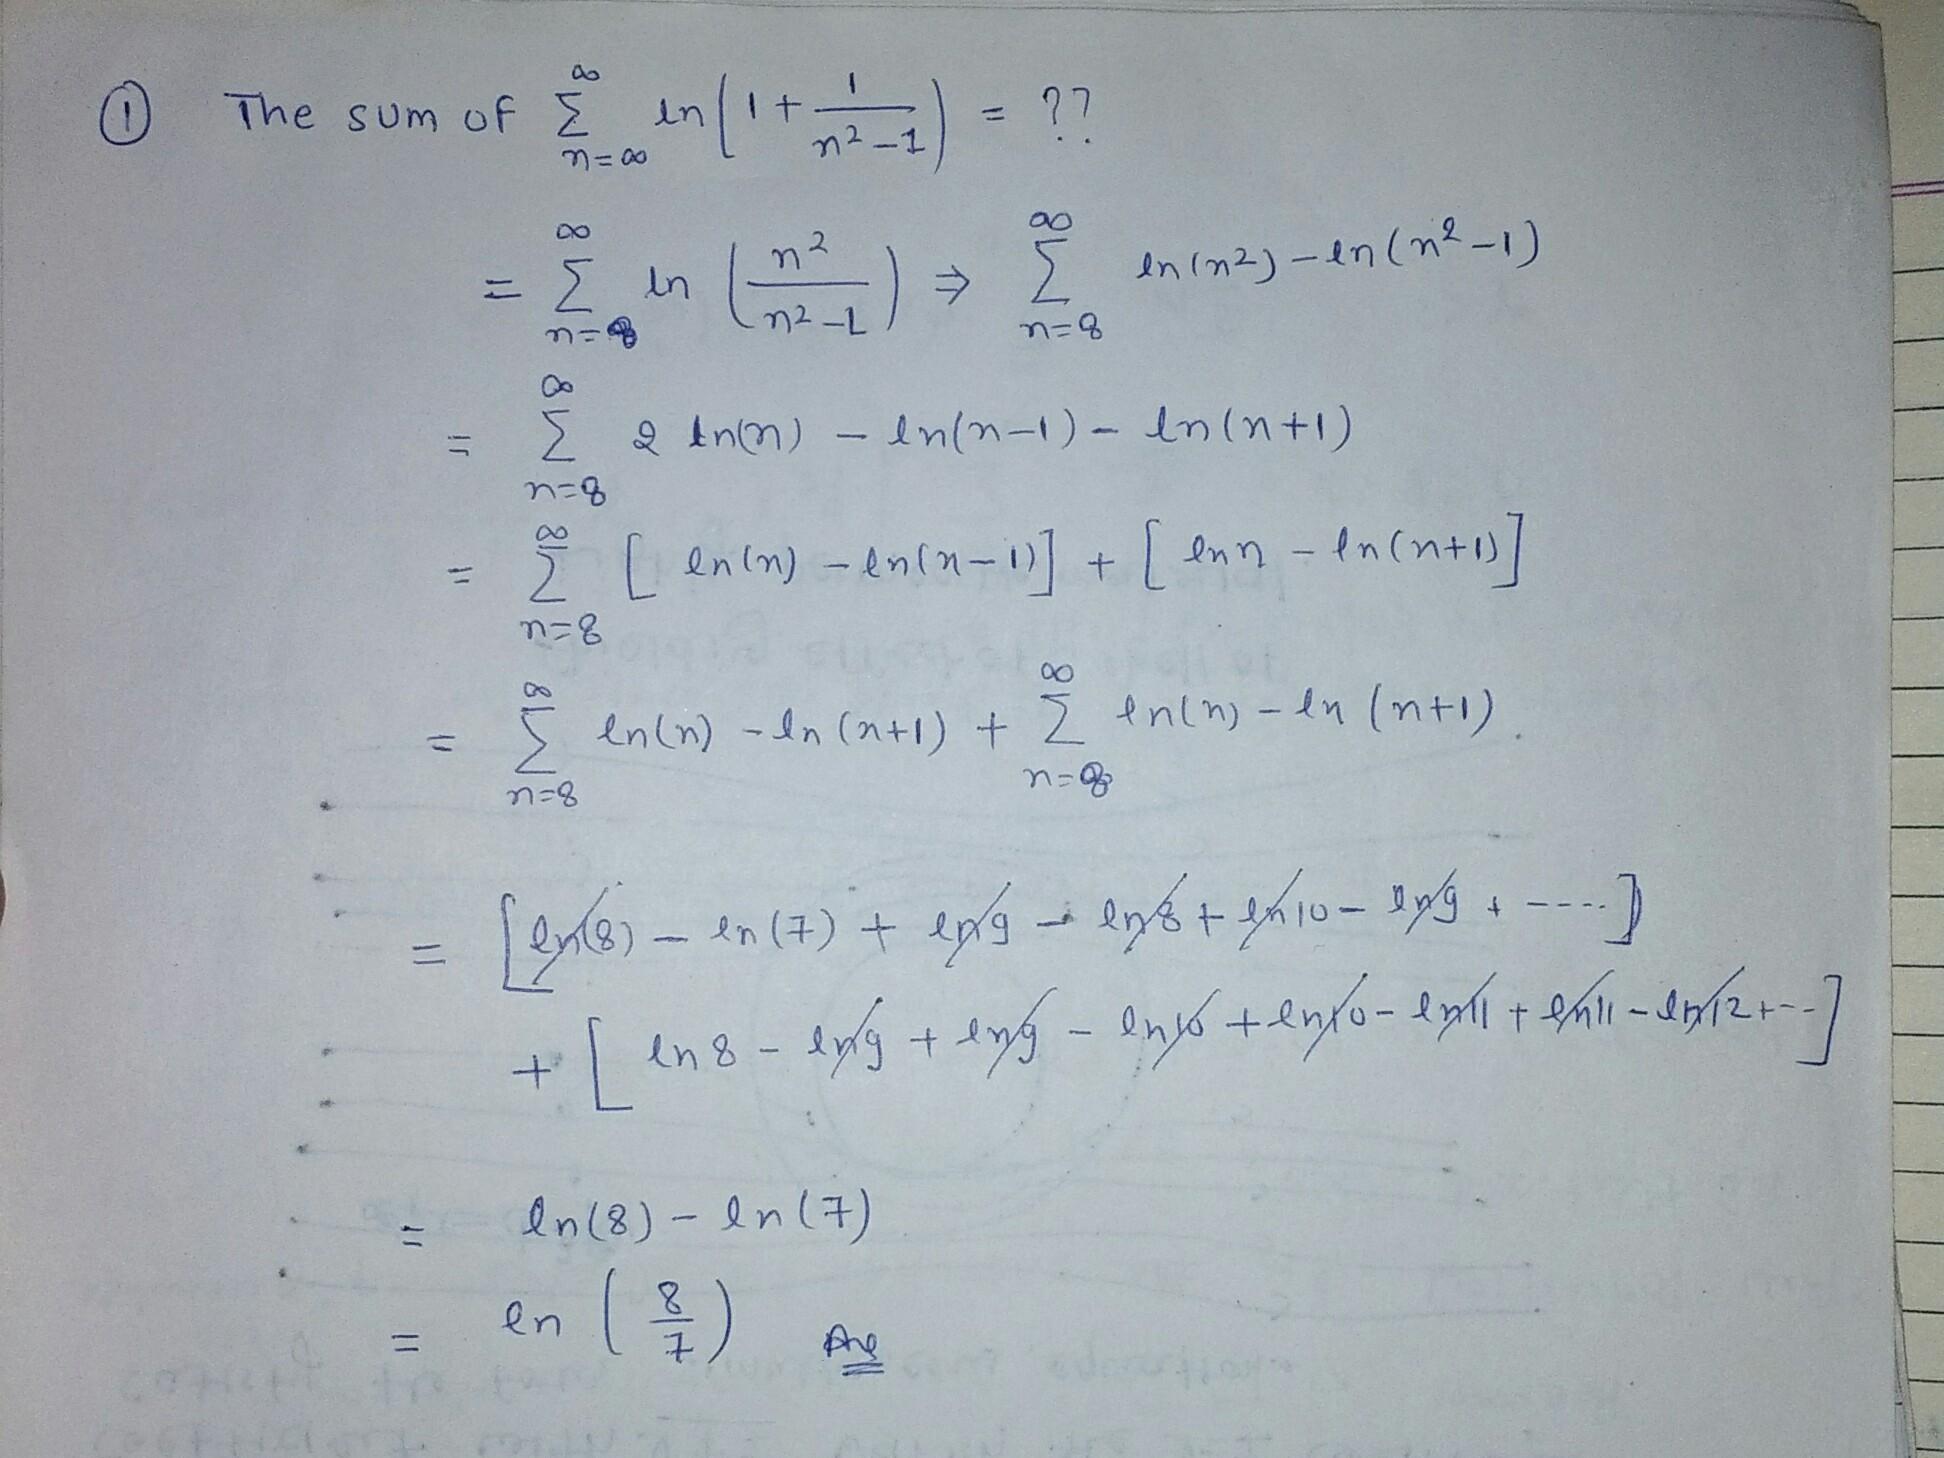 ① The sum of ∞ Σ n=∞ ln(1+ 1/(n²-1)) = ??
= ∞ Σ n=8 ln(n²/(n²-1)) ⇒ ∞ Σ n=8 ln(n²)-ln(n²-1)
= ∞ Σ n=8 2 ln(n) - ln(n-1)- ln(n+1)
= ∞ Σ n=8 [ln(n) -ln(n-1)] + [ln n - ln(n+1)]
= ∞ Σ n=8 ln(n) -ln(n+1) + ∞ Σ n=8 ln(n)-ln(n+1).
= [ln(8) - ln(7) + ln9 - ln8+ ln10- ln9 + -----]
+ [ln8 - ln9 + ln9 - ln10 +ln10- ln11 + ln11 -ln12+---]
= ln(8) - ln(7)
= ln(8/7) Ans